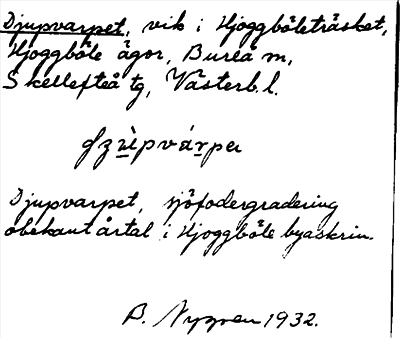 Djupvarpet, vik i Hjoggböleträsket,
Hjoggböle ågor, Bureå sn,
Skellefteå tg, Västerb. l.
Djupvarpet, sjöfodergradering
obekant årtal i Hjoggböle byaskrin.
B. 1932.